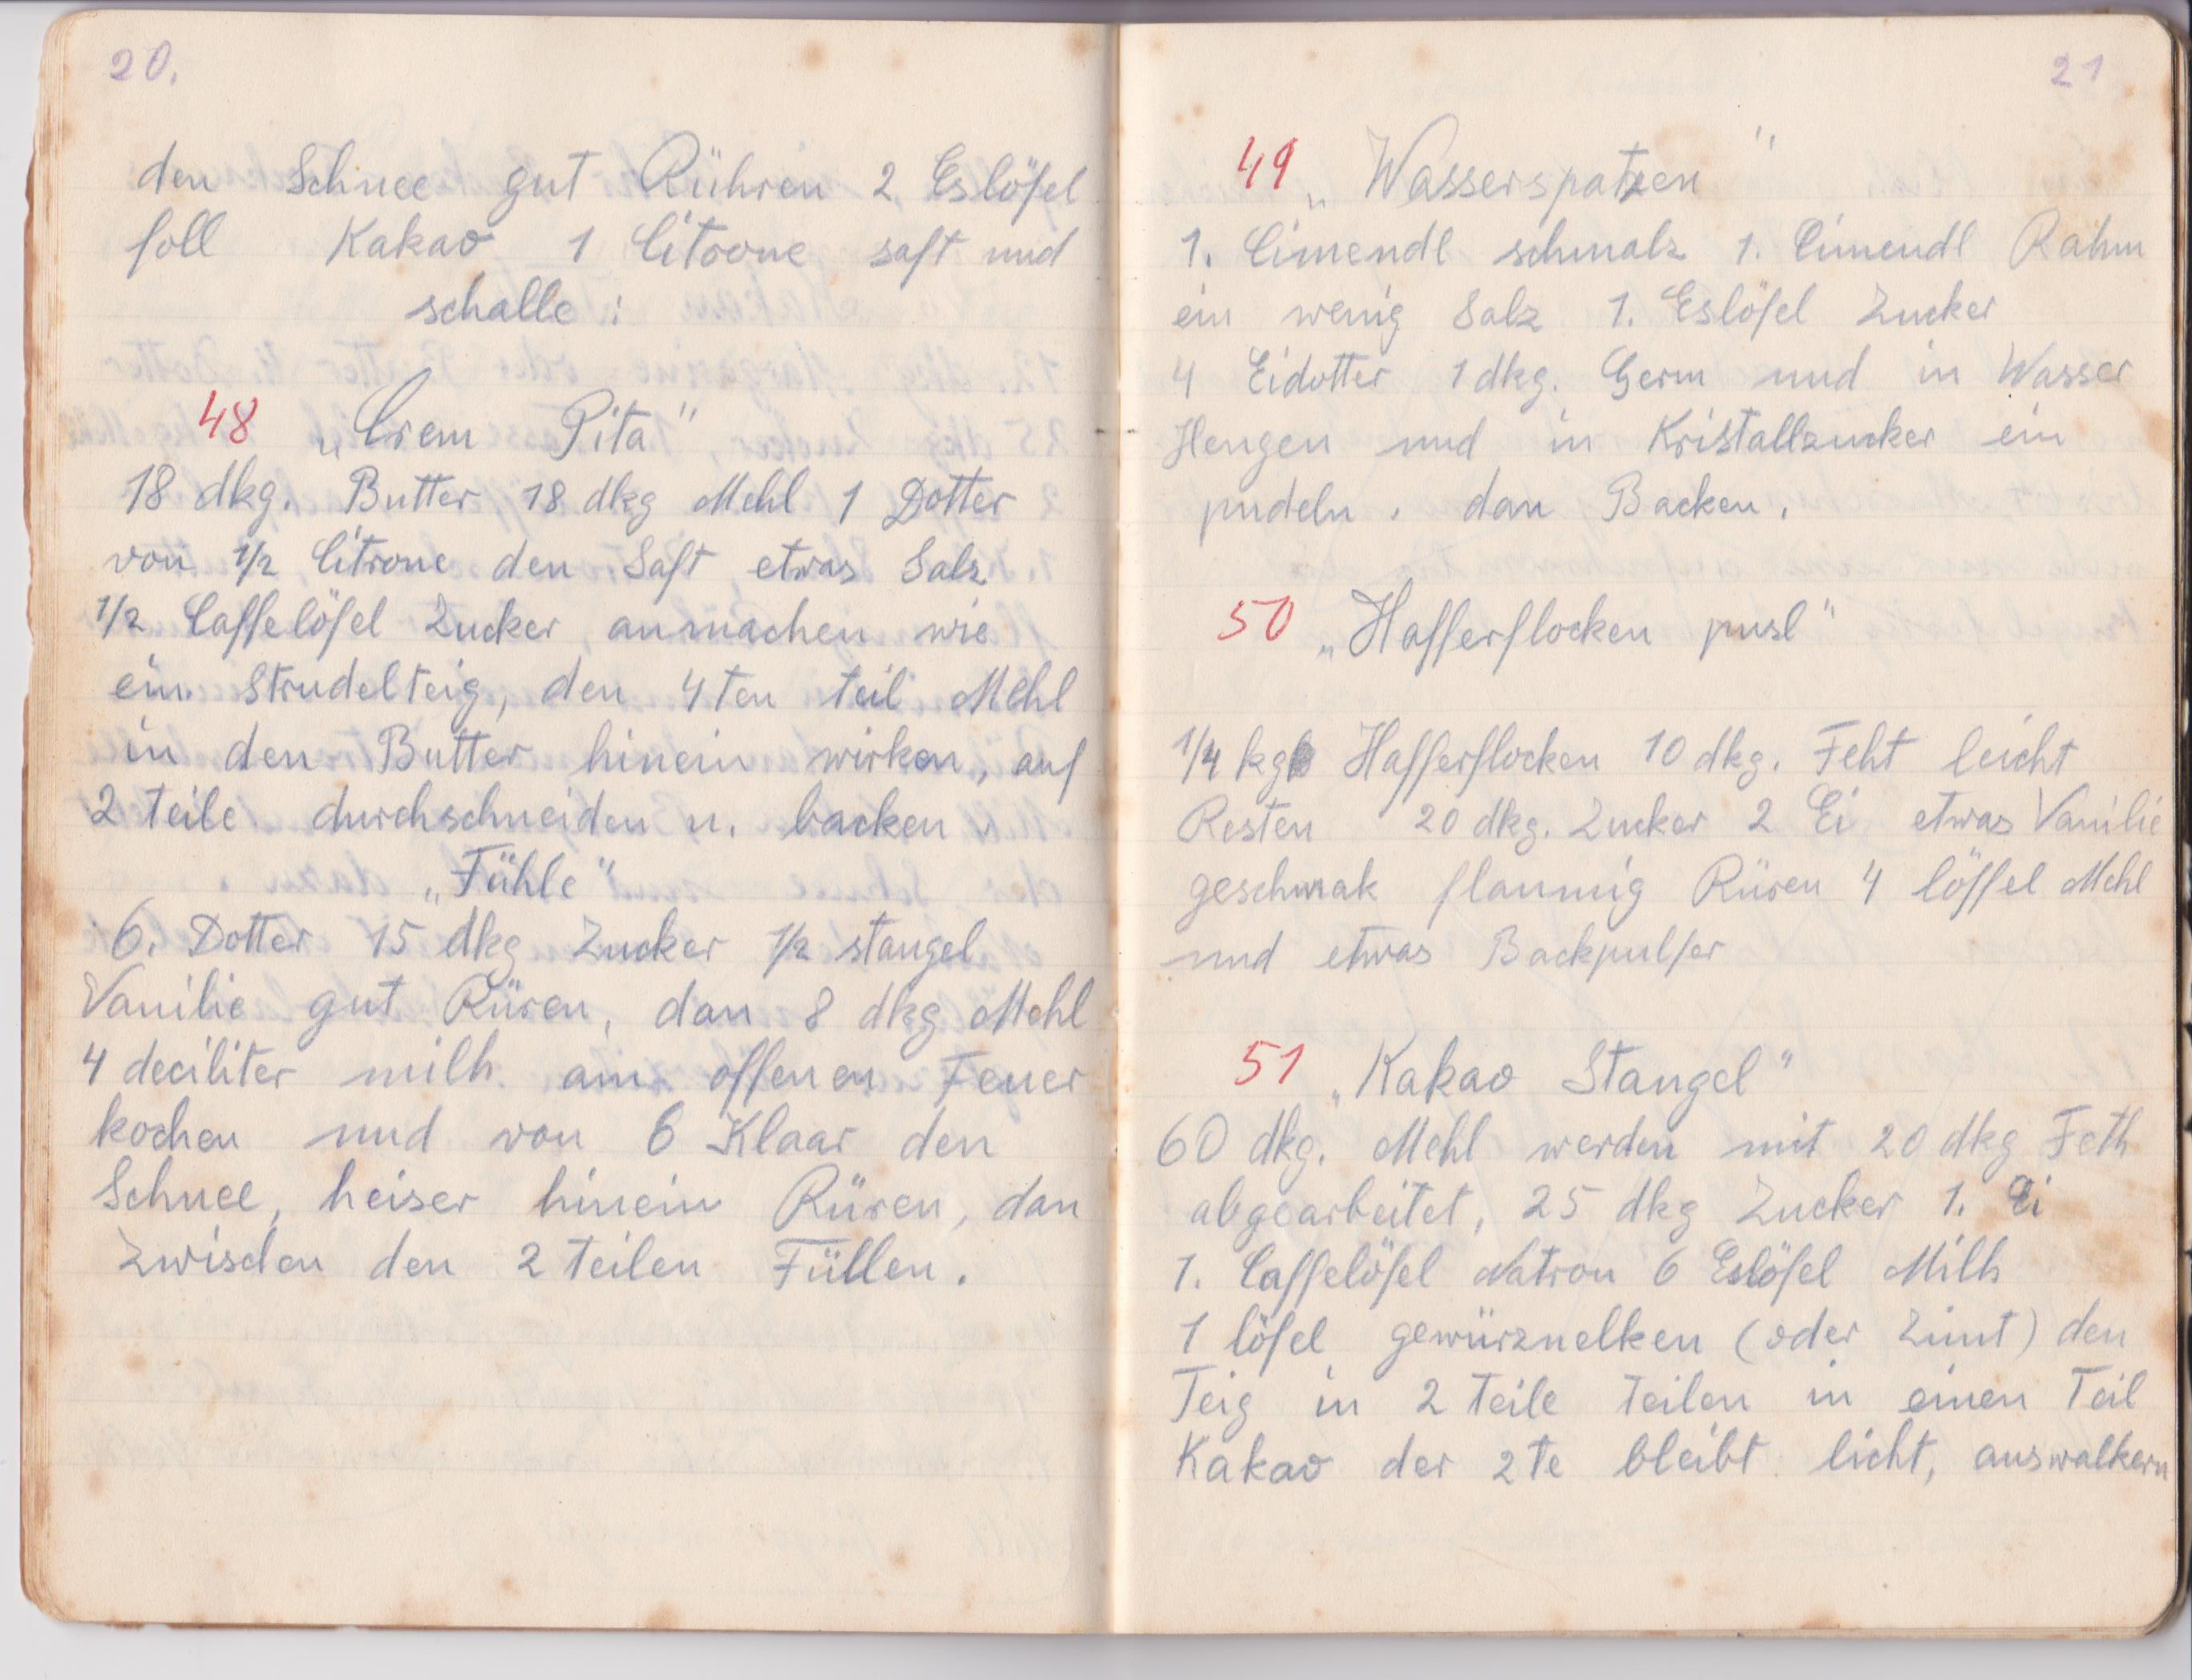 20.
den Schnee gut Rühren 2 Eslöfel
foll Kakao 1 Citrone saft und
schalle:
48 „Crem Pita"
18 dkg. Butter 18 dkg Mehl 1 Dotter
von 1/2 Citrone den Saft, etwas Salz
1/2 Caffelöfel Zucker, anmachen wie
ein Strudelteig, den 4ten teil Mehl
in den Butter hinein wirken, auf
2 teile durchschneiden u. backen.
„Fühle"
6. Dotter 15 dkg Zucker 1/2 stangel
Vanilie gut Rüren, dan 8 dkg Mehl
4 deciliter milh am offenen Feuer
kochen und von 6 Klaar den
Schnee, heiser hinein Rüren, dan
Zwischen den 2 teilen Füllen.
21
49 „Wasserspatzen"
1. Cimendl schmalz 1. Cimendl Rahm
ein wenig Salz 1. Eslöfel Zucker
4 Eidotter 1 dkg. Germ und in Wasser
Hengen und in Kristallzucker ein
pudeln. dan Backen.
50 „Hafferflocken pusl"
1/4 kg Hafferflocken 10 dkg. Feht leicht
Resten 20 dkg. Zucker 2 Ei etwas Vanilie
geschmak flaumig Rüren 4 löffel Mehl
und etwas Backpulfer
51 „Kakao Stangel"
60 dkg. Mehl werden mit 20 dkg Feth
abgearbeitet, 25 dkg Zucker 1. Ei
1. Caffelöfel Natron 6 Eslöfel Milh
1 löfel gewürznelken (oder Zimt) den
Teig in 2 Teile teilen in einen Teil
Kakao der 2te bleibt licht, auswalkern